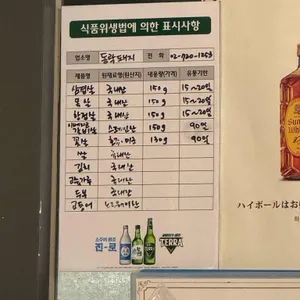 식품위생법에 의한 표시사항
업소명 동락돼지 전화 02-720-1253
제품명 원재료명(원산지) 내용량(가격) 유통기한
삼겹살 국내산 150g 15~20일
목살 국내산 150g 15~20일
항정살 국내산 150g 15~20일
스페인산 150g 90일
130g 90일
쌀 국내산
김치 국내산
고춧가루 국내산
두부 국내산
고등어 노르웨이산
소주의 원조
진로
TERRA
ハイボールはお